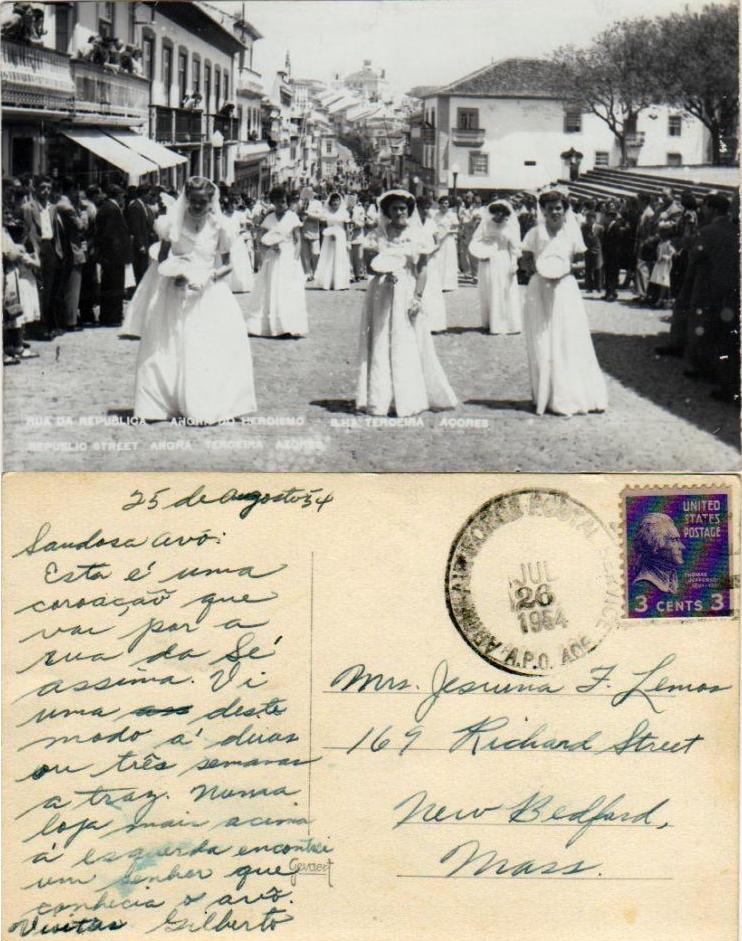 RUA DA REPUBLICA ANGRA DO HEROISMO ILHA TERCEIRA AÇORES
REPUBLIC STREET ANGRA TERCEIRA AZORES
25 de Agosto 54
Saudosa avó:
Esta é uma
coroação que
vai por a
rua da Sé
assima. Vi
uma deste
modo á duas
ou três semanas
a traz. Numa
loja mais acima
á esquerda encontrei
um senhor que
conhecia o avô.
Visitas Gilberto
Gevaert
ARMY-AIR FORCE POSTAL SERVICE
JUL
26
1954
A.P.O.
UNITED
STATES
POSTAGE
THOMAS
JEFFERSON
3 CENTS 3
Mrs. Jesuina F. Lemos
169 Richard Street
New Bedford,
Mass.